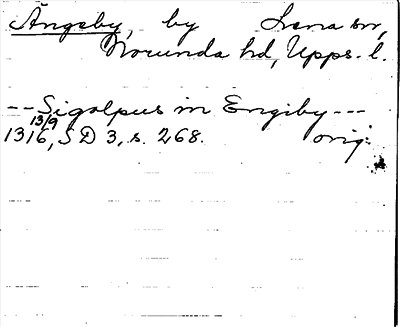 Ängeby, by Lena sn,
Norunda hd, Upps. l.
-- Sigolpus in Engiby ---
13/9
1316, SD 3, s. 268. orig.